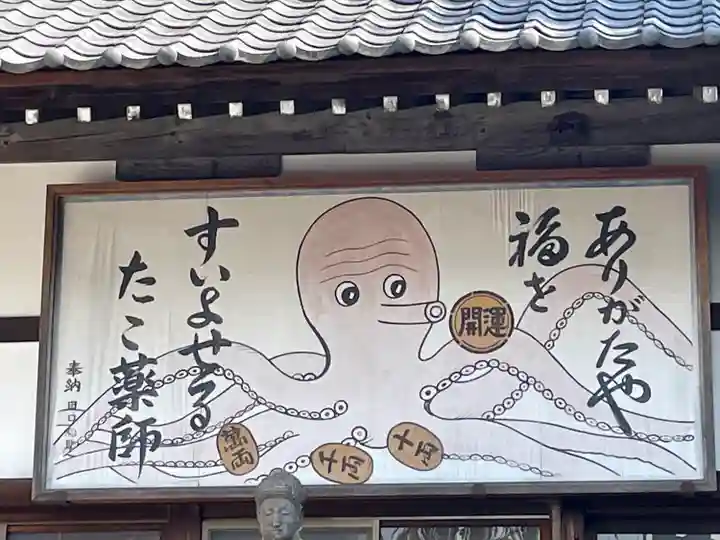 ありがたや
福を
すいよせる
たこ薬師
奉納
開運
萬両
千両
十両